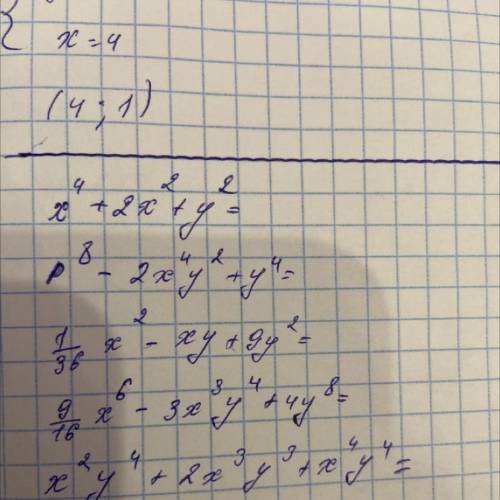 x = 4
(4 ; 1)
x⁴ + 2x² + y² =
p⁸ - 2x⁴y² + y⁴ =
1/36 x² - xy + 9y² =
9/16 x⁶ - 3x³y⁴ + 4y⁸ =
x²y⁴ + 2x³y³ + x⁴y⁴ =